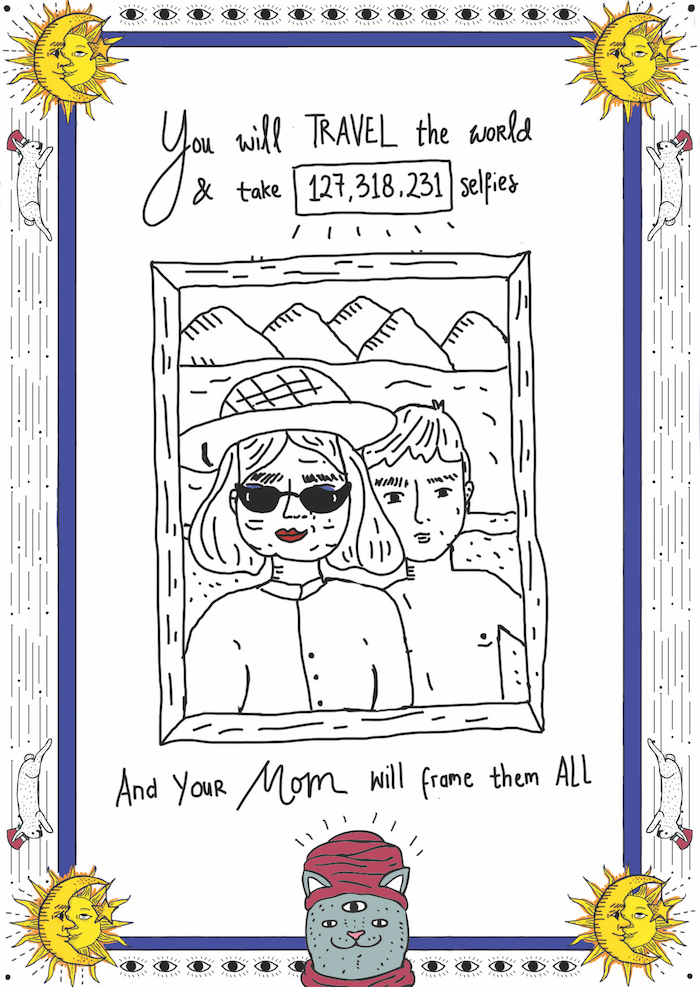 You will TRAVEL the world
& take 127,318,231 selfies
And Your Mom will frame them ALL